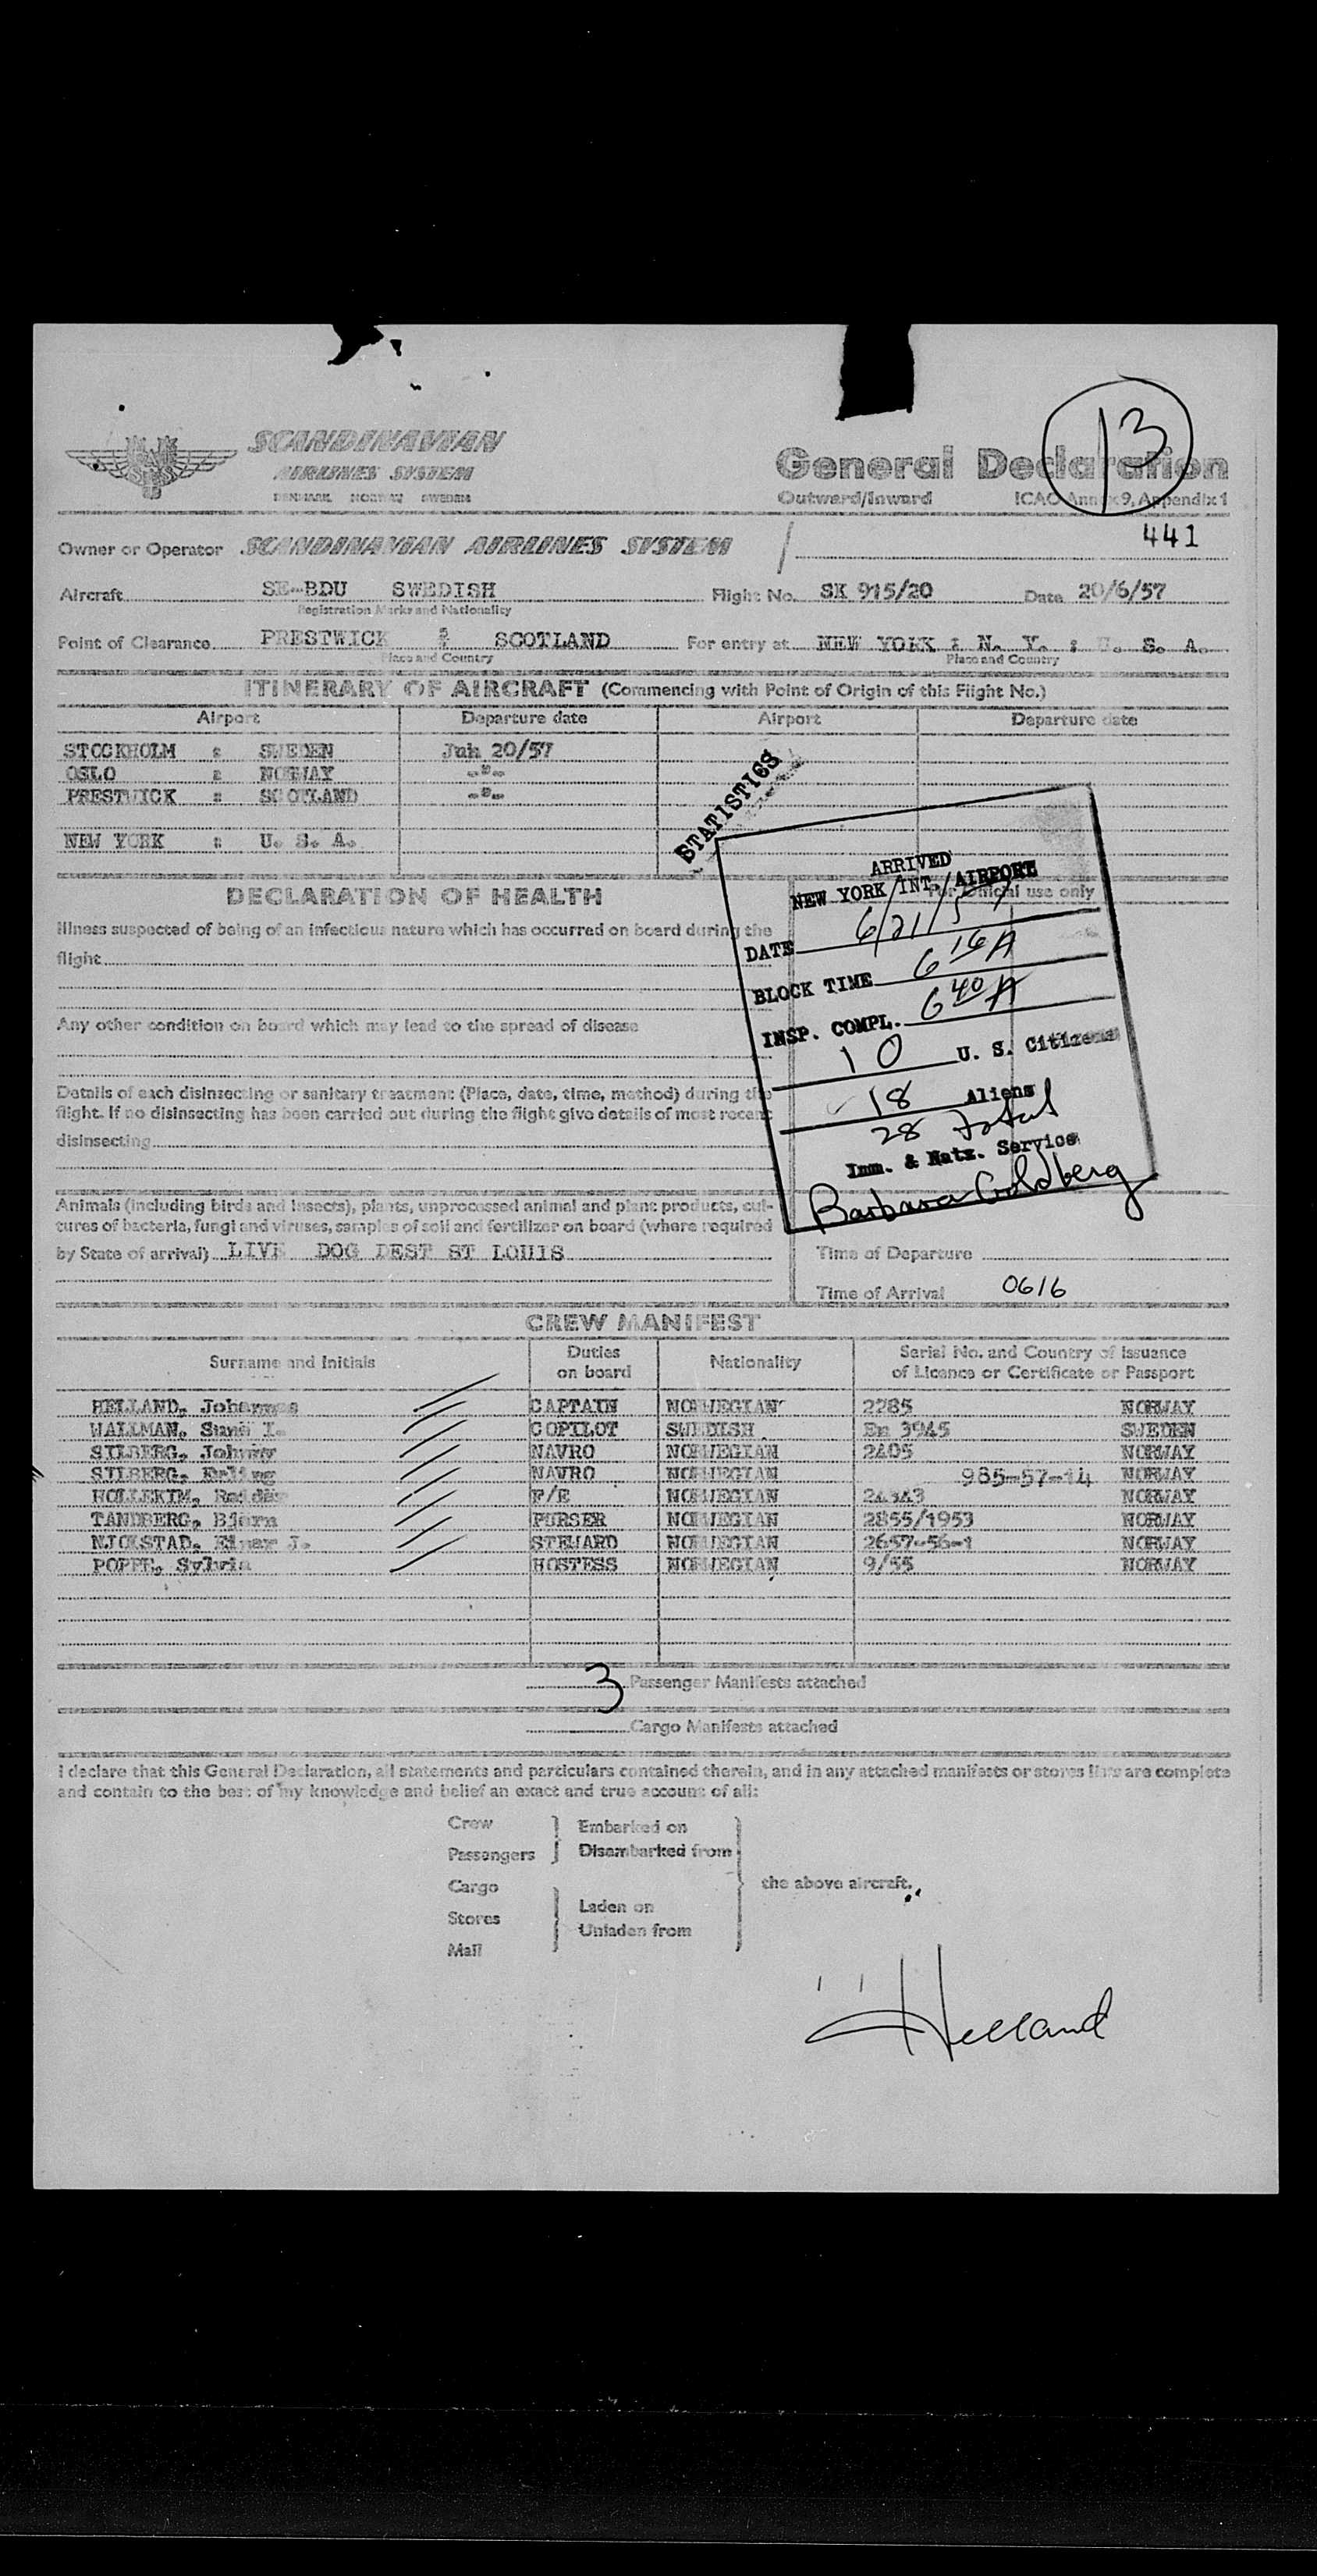 13
SCANDINAVIAN
AIRLINES SYSTEM
DENMARK NORWAY SWEDEN
General Declaration
Outward/Inward ICAO Annex 9, Appendix 1
441
Owner or Operator SCANDINAVIAN AIRLINES SYSTEM
Aircraft SE-BDU SWEDISH Flight No. SK 915/20 Date 20/6/57
Registration Marks and Nationality
Point of Clearance PRESTWICK : SCOTLAND For entry at NEW YORK : N. Y. : U. S. A.
Place and Country Place and Country
ITINERARY OF AIRCRAFT (Commencing with Point of Origin of this Flight No.)
Airport Departure date Airport Departure date
STOCKHOLM : SWEDEN Jun 20/57
OSLO : NORWAY -"-
PRESTWICK : SCOTLAND -"-
NEW YORK : U. S. A.
STATISTICS
ARRIVED
NEW YORK INT. AIRPORT
DATE 6/21/57
BLOCK TIME 6 16 A
INSP. COMPL. 6 40 A
10 U. S. Citizens
18 Aliens
28 total
Imm. & Natz. Service
Barbara Goldberg
DECLARATION OF HEALTH For official use only
Illness suspected of being of an infectious nature which has occurred on board during the
flight
Any other condition on board which may lead to the spread of disease
Details of each disinsecting or sanitary treatment (Place, date, time, method) during the
flight. If no disinsecting has been carried out during the flight give details of most recent
disinsecting
Animals (including birds and insects), plants, unprocessed animal and plant products, cul-
tures of bacteria, fungi and viruses, samples of soil and fertilizer on board (where required
by State of arrival) LIVE DOG DEST ST LOUIS
Time of Departure
Time of Arrival 0616
CREW MANIFEST
Surname and Initials Duties on board Nationality Serial No. and Country of Issuance of Licence or Certificate or Passport
HELLAND, Johannes CAPTAIN NORWEGIAN 2285 NORWAY
WALLMAN, COPILOT SWEDISH En 3945 SWEDEN
SILBERG, Johnny NAVRO NORWEGIAN 2405 NORWAY
SILBERG, Erling NAVRO NORWEGIAN 985-57-14 NORWAY
HOLLEKIM, Reidar F/E NORWEGIAN 24343 NORWAY
TANDBERG, Bjørn PURSER NORWEGIAN 2855/1953 NORWAY
NJOKSTAD, Einar J. STEWARD NORWEGIAN 2657-56-1 NORWAY
POPPE, Sylvia HOSTESS NORWEGIAN 9/55 NORWAY
3 Passenger Manifests attached
Cargo Manifests attached
I declare that this General Declaration, all statements and particulars contained therein, and in any attached manifests or stores lists are complete
and contain to the best of my knowledge and belief an exact and true account of all:
Crew
Passengers
Embarked on
Disambarked from
Cargo
Stores
Mail
Laden on
Unladen from
the above aircraft.
Helland